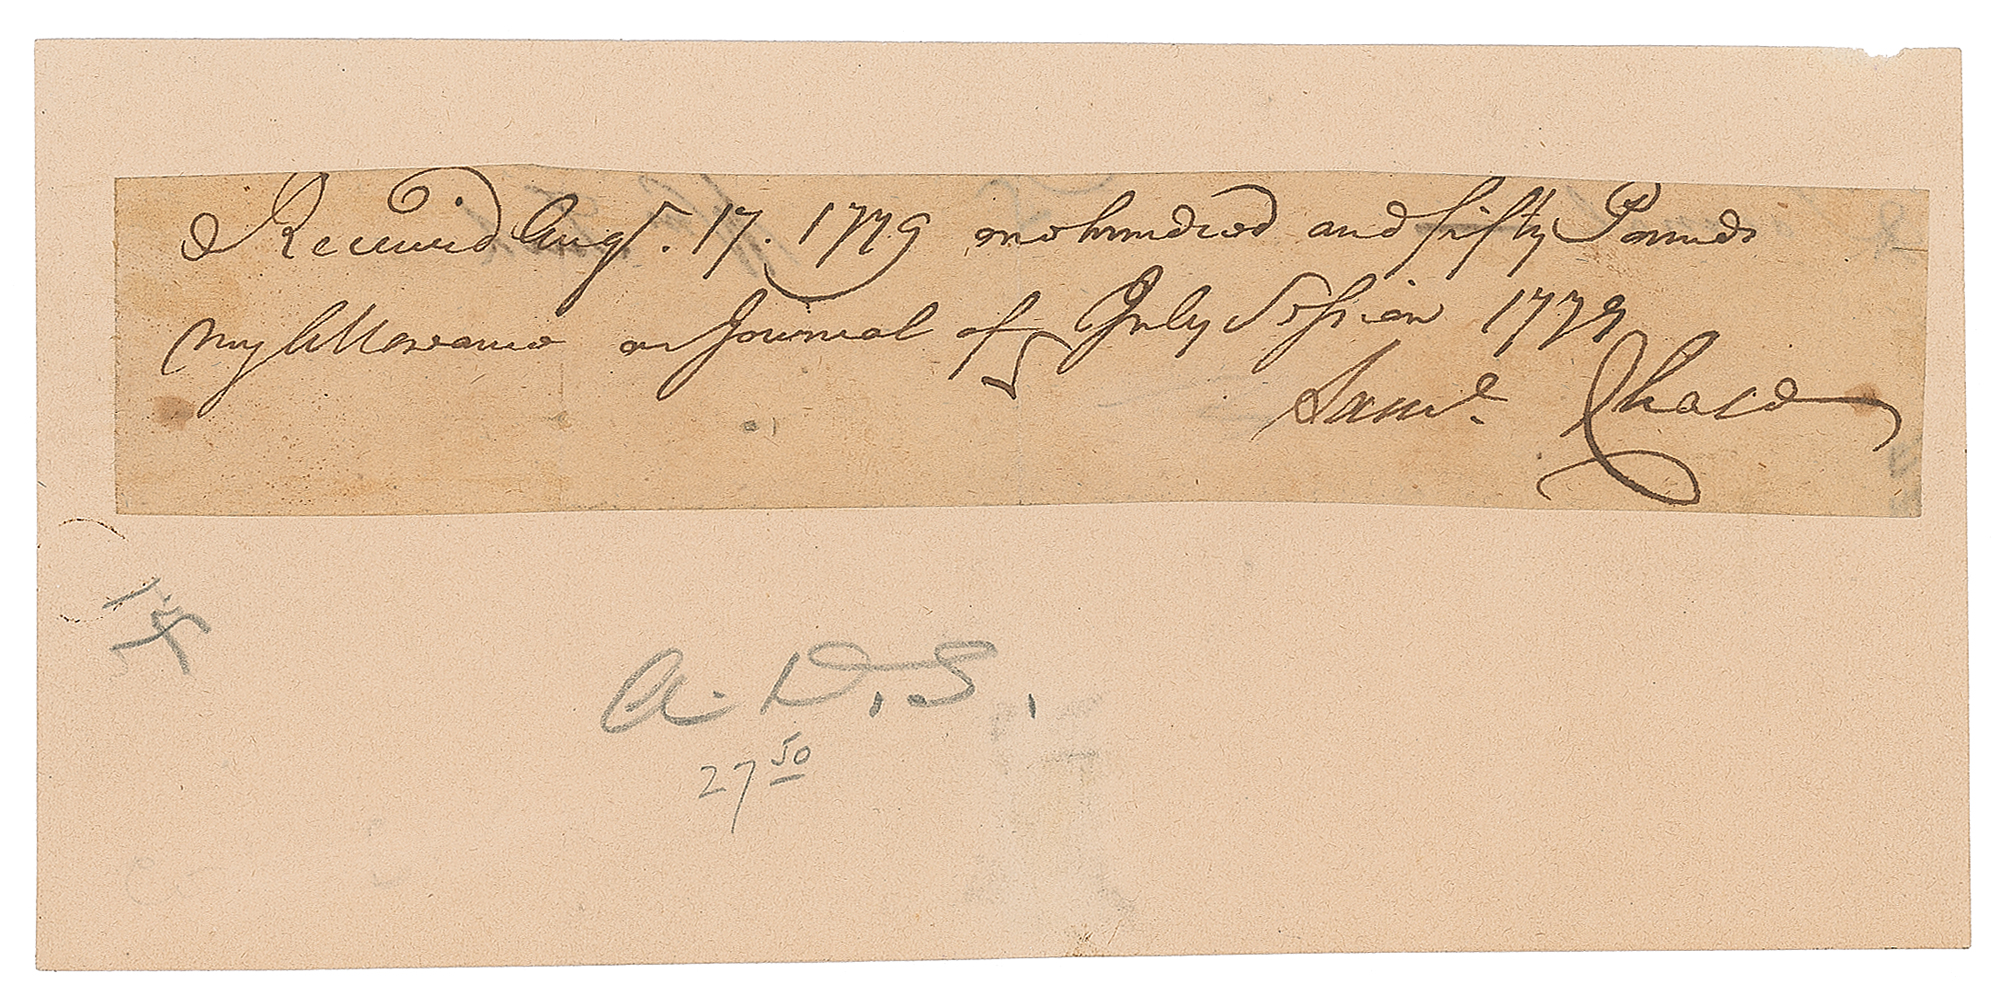 Received Augt. 17. 1779 one hundred and fifty Pounds
my Allowance as Journal of July Session 1779
Saml. Chase
A.D.S.
27 50